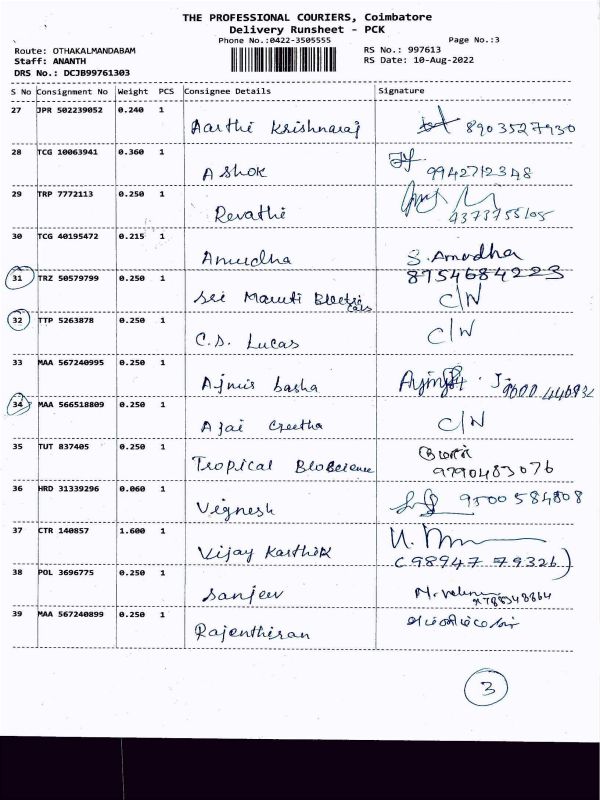 THE PROFESSIONAL COURIERS, Coimbatore
Delivery Runsheet - PCK
Phone No.:0422-3505555
Page No.:3
Route: OTHAKALMANDABAM
RS No.: 997613
Staff: ANANTH
RS Date: 10-Aug-2022
DRS No.: DCJB99761303
S No Consignment No Weight PCS Consignee Details Signature
27 JPR 502239052 0.240 1
Aarthi Krishnaraj 8903527930
28 TCG 10063941 0.360 1
Ashok 9942712348
29 TRP 7772113 0.250 1
Revathi
30 TCG 40195472 0.215 1
Anuudha S. Amudha
8754684223
31 TRZ 50579799 0.250 1
Sri Maruti Electricals C/N
32 TTP 5263878 0.250 1
C.S. Lucas C/N
33 MAA 567240995 0.250 1
Ajmis basha
34 MAA 566518809 0.250 1
Ajai Geetha C/N
35 TUT 837405 0.250 1
Tropical BioScience 9790483076
36 HRD 31339296 0.060 1
Vignesh 9500584808
37 CTR 140857 1.600 1
Vijay Karthik (98947 79326)
38 POL 3696775 0.250 1
Sanjeev
39 MAA 567240899 0.250 1
Rajenthiran
3